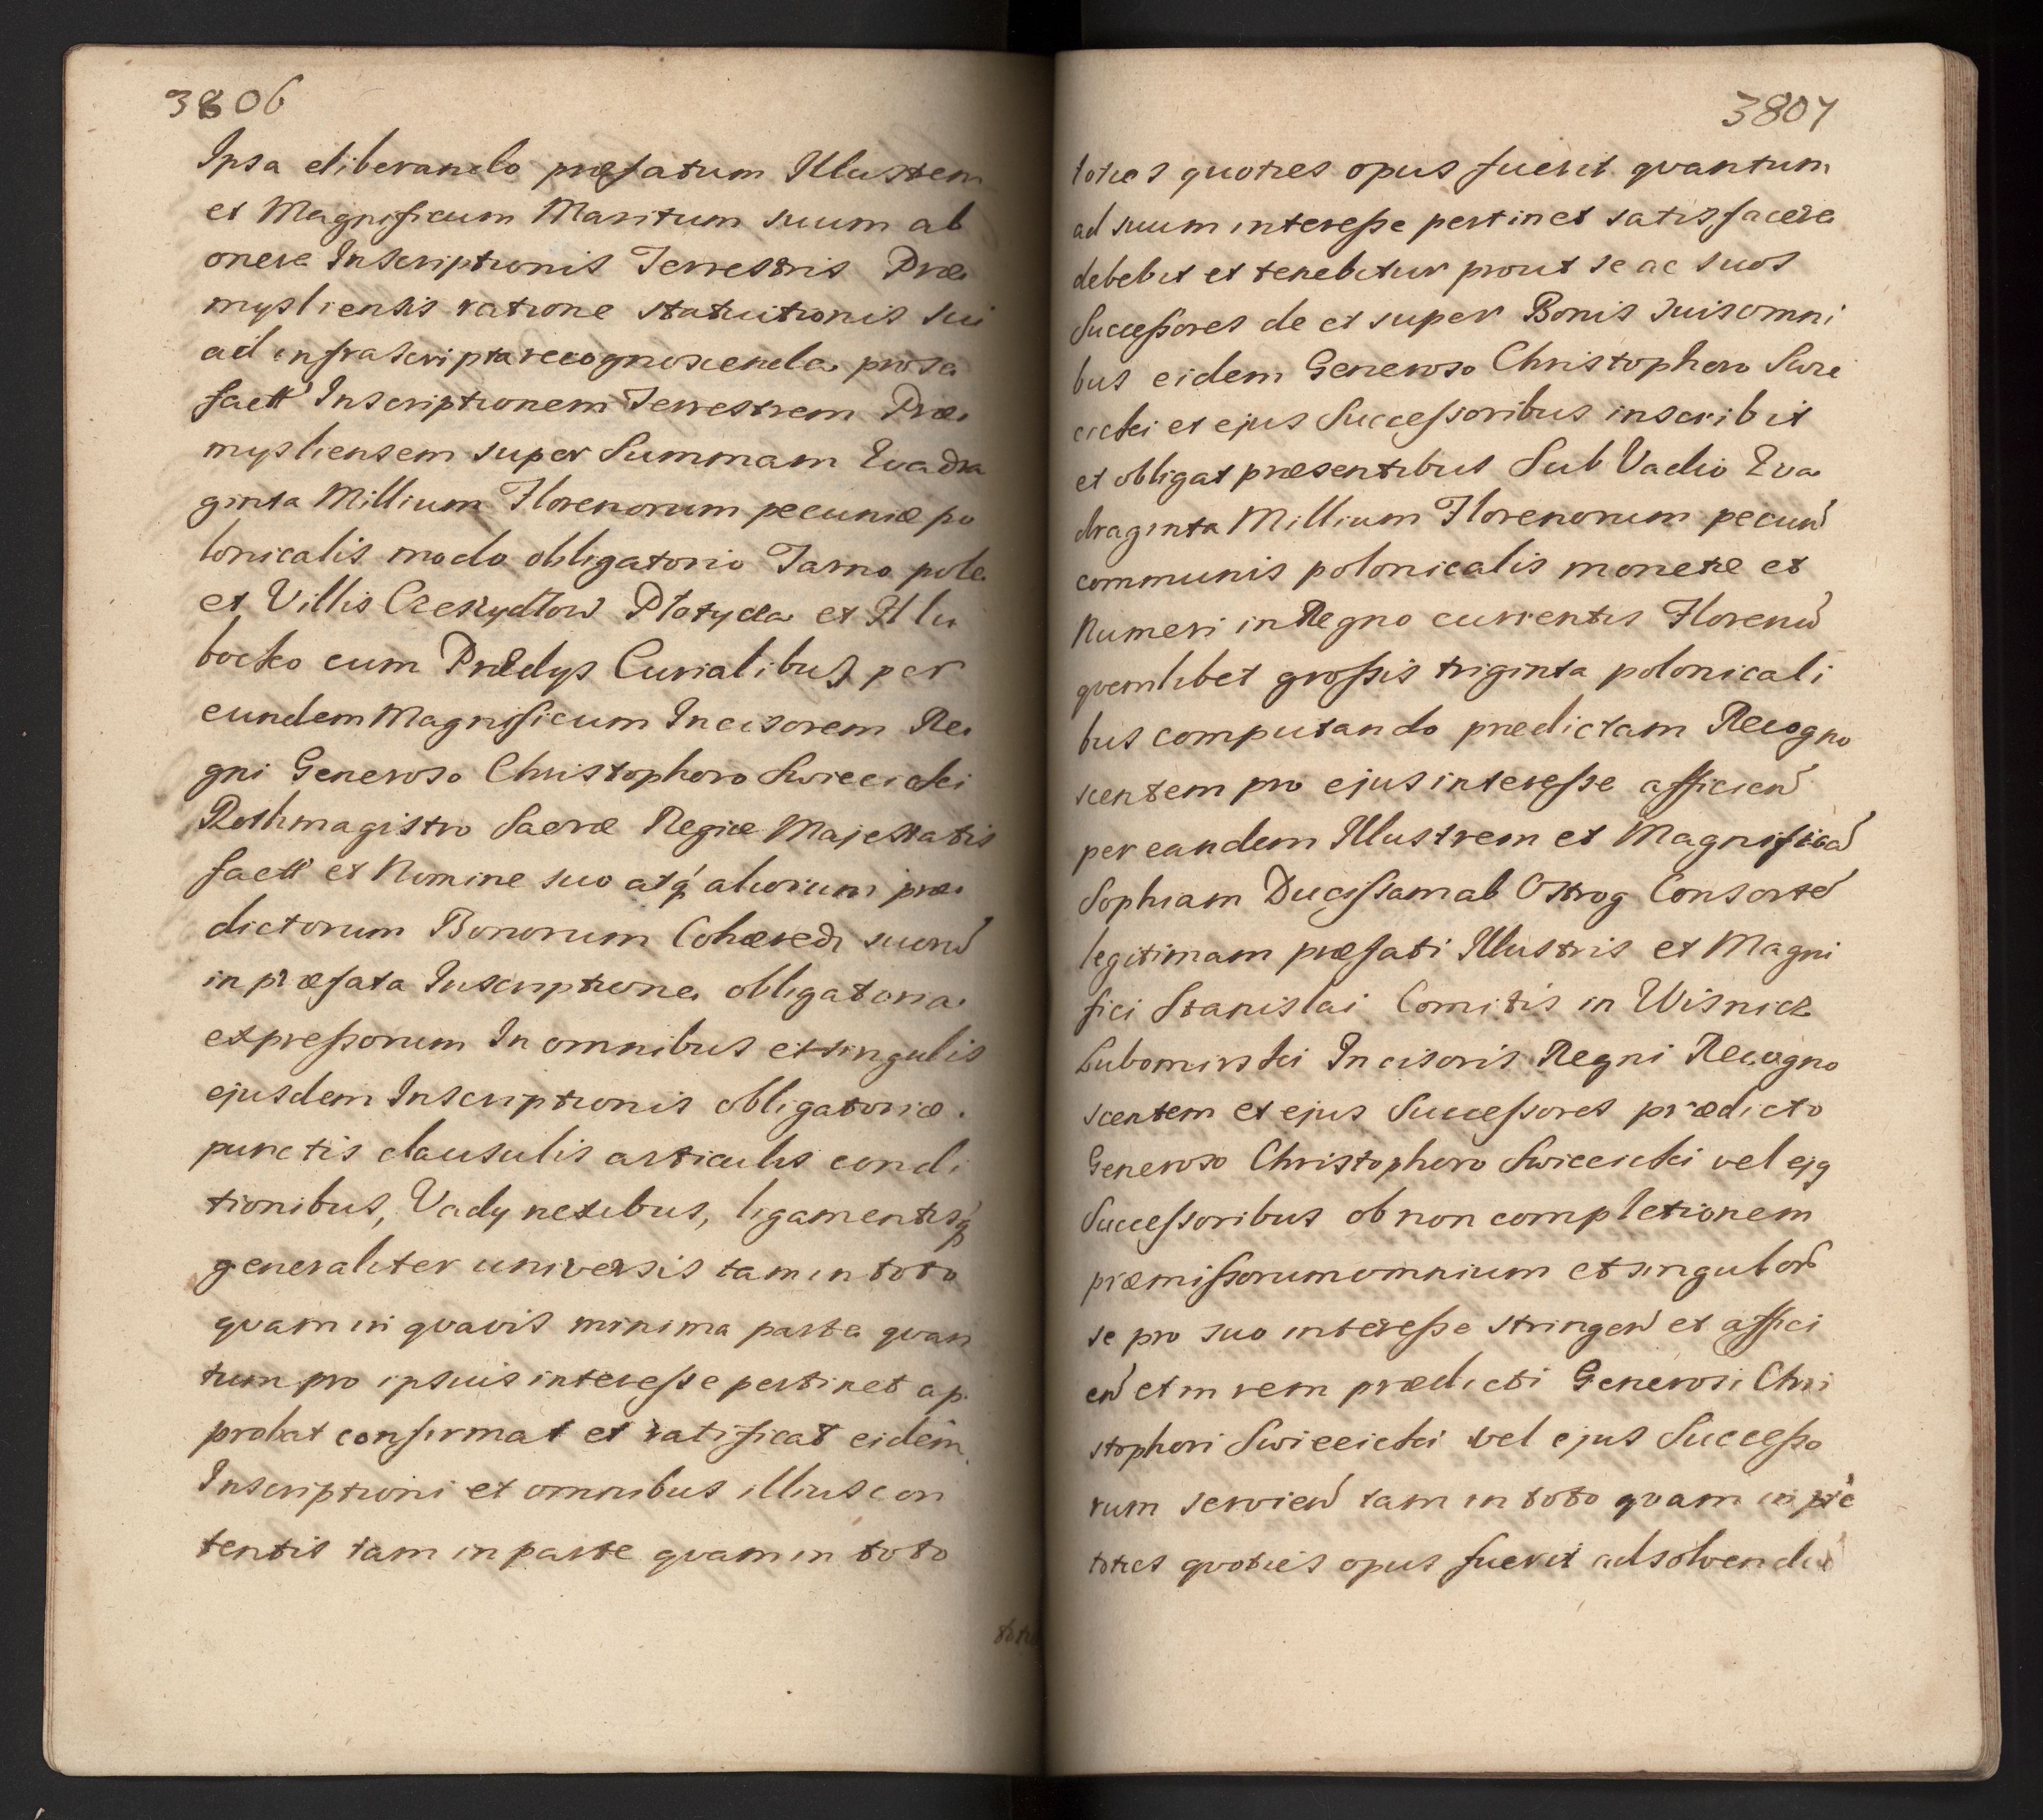 3806
Ipsa eliberando præfatum Illustrem
et Magnificum Maritum suum ab
onere Inscriptionis Terrestris Præ
mysliensis ratione statuitionis sui
ad infrascripta recognoscenda prosa
factt Inscriptionem Terrestrem Præ
mysliensem super Summam Quadra
ginta Millium Florenorum pecuniæ po
lonicalis modo obligatorio Tarno pole
et Villis Czekydłow Płotycza et Hlu
bocko cum Prædys Curialibus per
eundem Magnificum Incisorem Re
gni Generoso Christophoro Swiecicki
Rothmagistro Sacræ Regiæ Majestatis
factt et Nomine suo atq́ aliorum præ
dictorum Bonorum Cohæredr suorũ
in præfata Inscriptione obligatoria
expressorum In omnibus et singulis
ejusdem Inscriptionis obligatoriæ
punctis clausulis articulis condi
tionibus, Vady nexibus, ligamentisq́
generaliter universis tam in toto
quam in quavis minima parte quan
tum pro ipsius interesse pertinet ap
probat confirmat et ratificat eidem
Inscriptioni et omnibus illius con
tentis tam in parte quam in toto
3807
toties quoties opus fuerit quantum
ad suum interesse pertinet satisfacere
debebit et tenebitur prout se ac suos
Successores de et super Bonis suis omni
bus eidem Generoso Christophoro Swie
cicki et ejus Successoribus inscribit
et obligat præsentibus Sub Vadio Qua
draginta Millium Florenorum pecuñ
communis polonicalis monetæ et
Numeri in Regno currentis Florenũ
quemlibet grossis triginta polonicali
bus computando prædictam Recogno
scentem pro ejus interesse afficieñ
per eandem Illustrem et Magnificã
Sophiam Ducissam ab Ostrog Consortẽ
legitimam præfati Illustris et Magni
fici Stanislai Comitis in Wisnicz
Lubomirski Incisoris Regni Recogno
scentem et ejus Successores prædicto
Generoso Christophoro Swiecicki vel ejq
Successoribus ob non completionem
præmissorum omnium et singulorũ
se pro suo interesse stringeñ et affici
eñ et in rem prædicti Generosi Chri
stophori Swiecicki vel ejus Successo
rum servieñ tam in toto quam in pte
toties quoties opus fuerit ad solvendũ